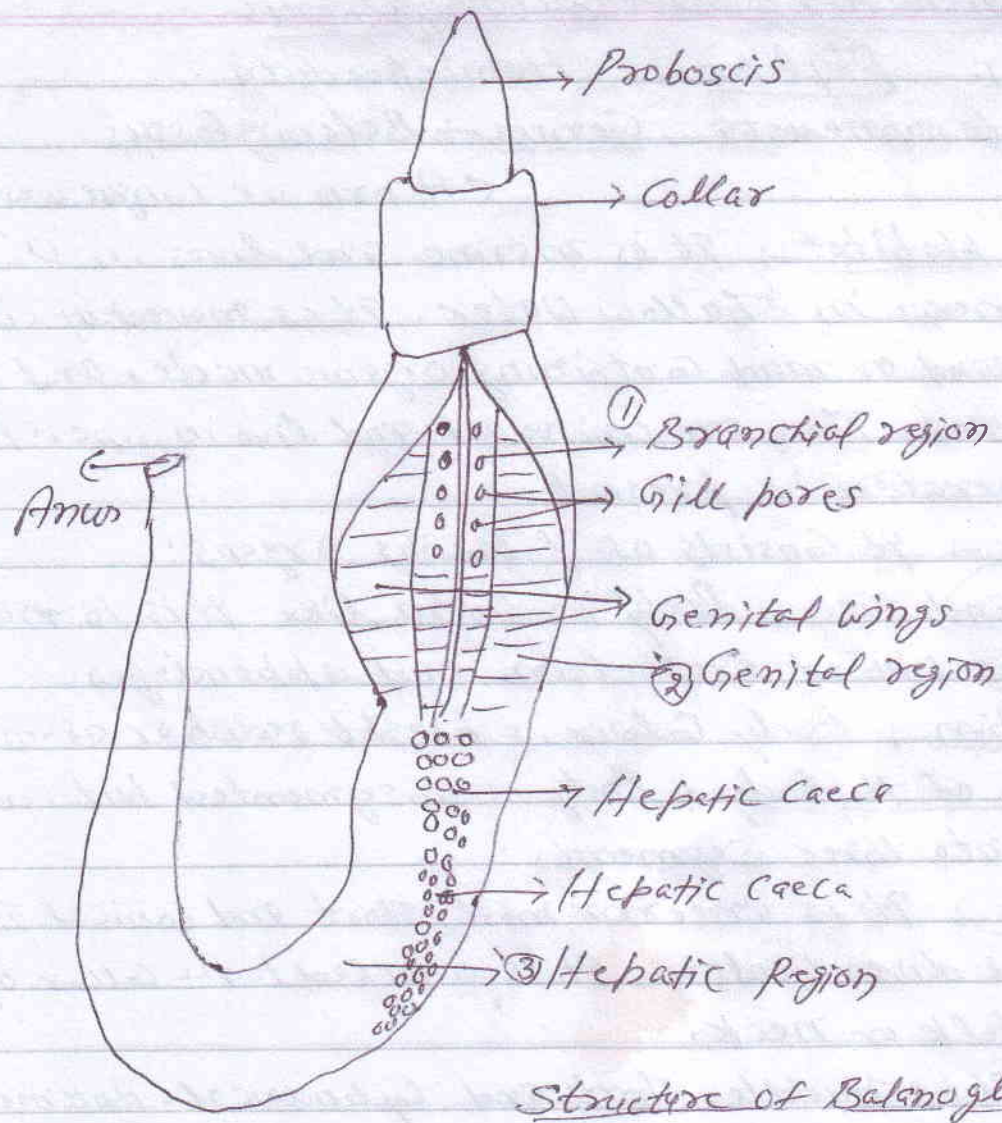 Proboscis
Collar
① Branchial region
Gill pores
Anus
Genital wings
② Genital region
Hepatic Caeca
Hepatic Caeca
③ Hepatic Region
Structure of Balanogl